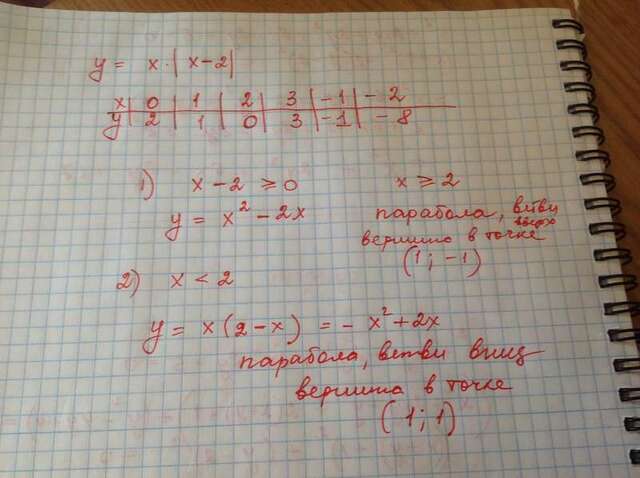 y = x · |x-2|
x | 0 | 1 | 2 | 3 | -1 | -2
y | 2 | 1 | 0 | 3 | -1 | -8
1) x - 2 ≥ 0 x ≥ 2
y = x² - 2x парабола, ветви вверх
вершина в точке
(1; -1)
2) x < 2
y = x(2-x) = - x² + 2x
парабола, ветви вниз
вершина в точке
(1; 1)